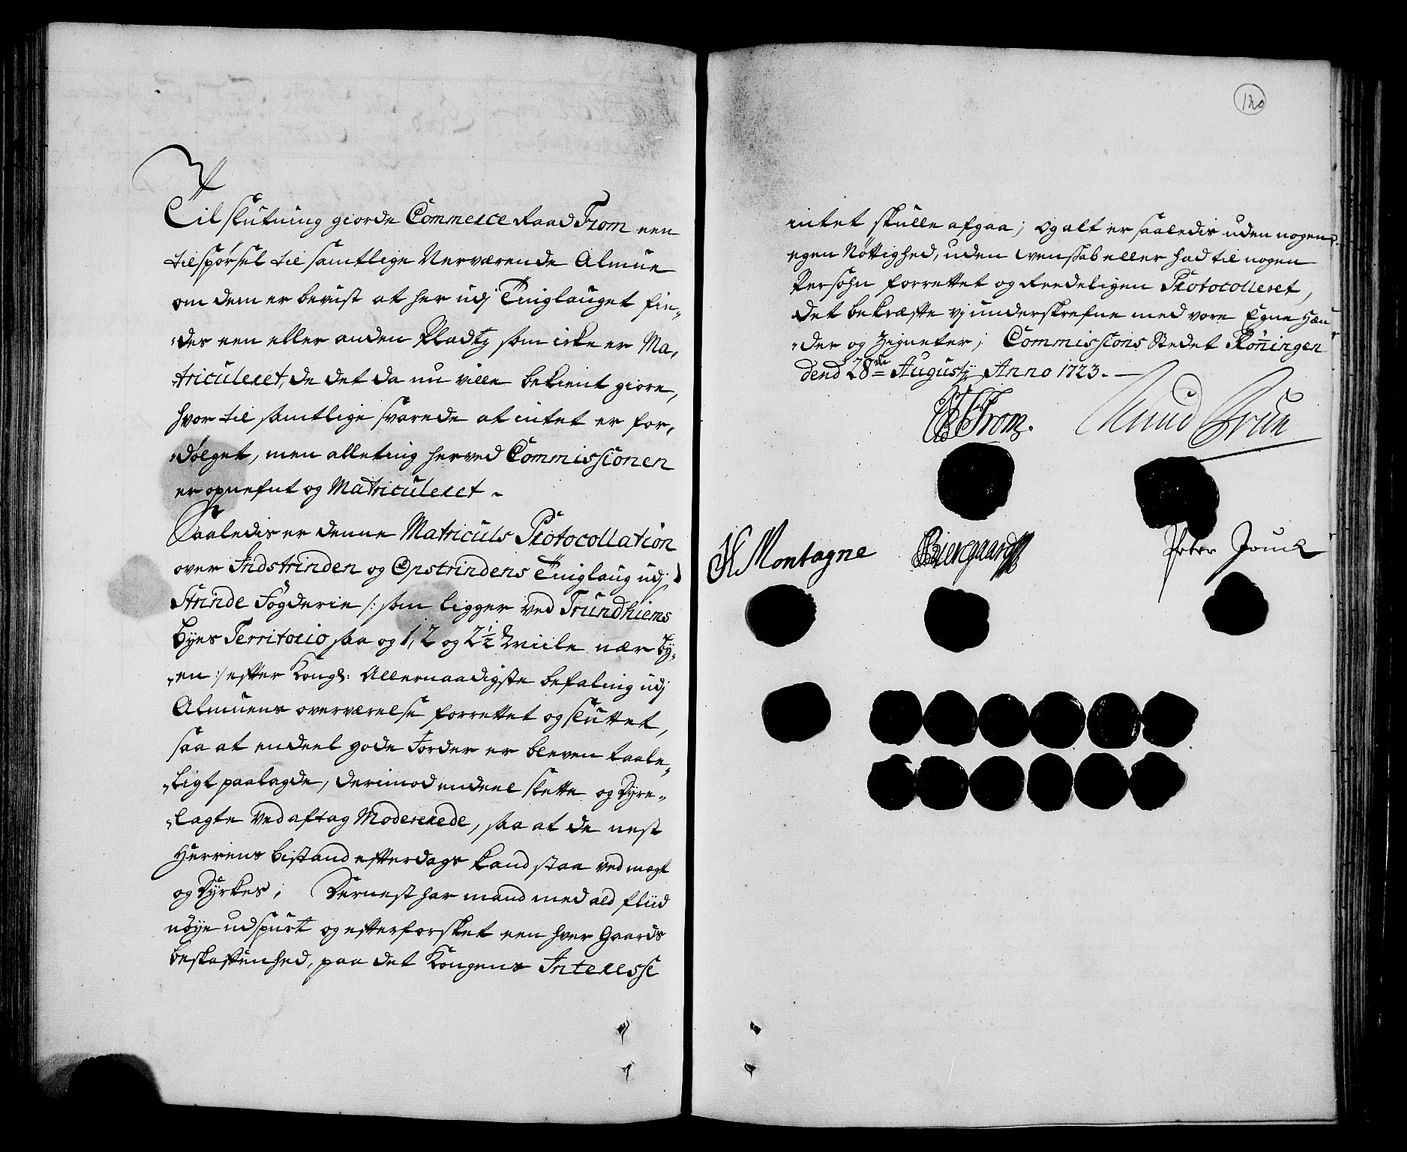 Til Slutning giorde Commerce Raad From een
tilspørsel til samtlige Nerværende Almue
om dem er bevist at her udj Tinglauget fin,,
,,des een eller anden Pladtz som icke er Ma,,
,,triculeret, de det da nu ville bekient giøre,
hvor til samtlige svarede at intet er for,,
,,dølget, men alleting herved Commissionen
er opnefnt og Matriculeret.
Saaledis er denne Matriculs Protocollation
over Indstrinden og Opstrindens Tinglaug udj
Strinde Fogderie /: som ligger ved Trundhiems
Byes Territorio saa og 1, 2 og 2½ Miile nær By,,
,,en :/ efter Kongl: Allernaadigste befaling udj
Almuens overværelse forrettet og sluttet,
saa at endeel gode Jorder er bleven taale,,
,,ligt paalagde, derimod endeel slette og Dyre,,
,,lagte ved aftag Modererede, saa at de nest
Herrens bistand efterdags kand staa ved magt
og Dyrkes; Dernest har mand med ald fliid
nøye udspurt og efterforsket een hver Gaards
beskaffenhed, paa det Kongens Interesse
120
intet skulle afgaa; og alt er saaledis uden nogen
egen Nøttighed, uden Venskab eller had til nogen
Persohn forrettet og fredeligen Protocolleret,
det bekræfte vj underskrefne med vore Egne Hæn
,,der og Zigneter; Commissions Stedet Røningen
dend 28de Augustj Anno 1723.
From. Knud Bruun
H Montagne Biergaard Peter Juul